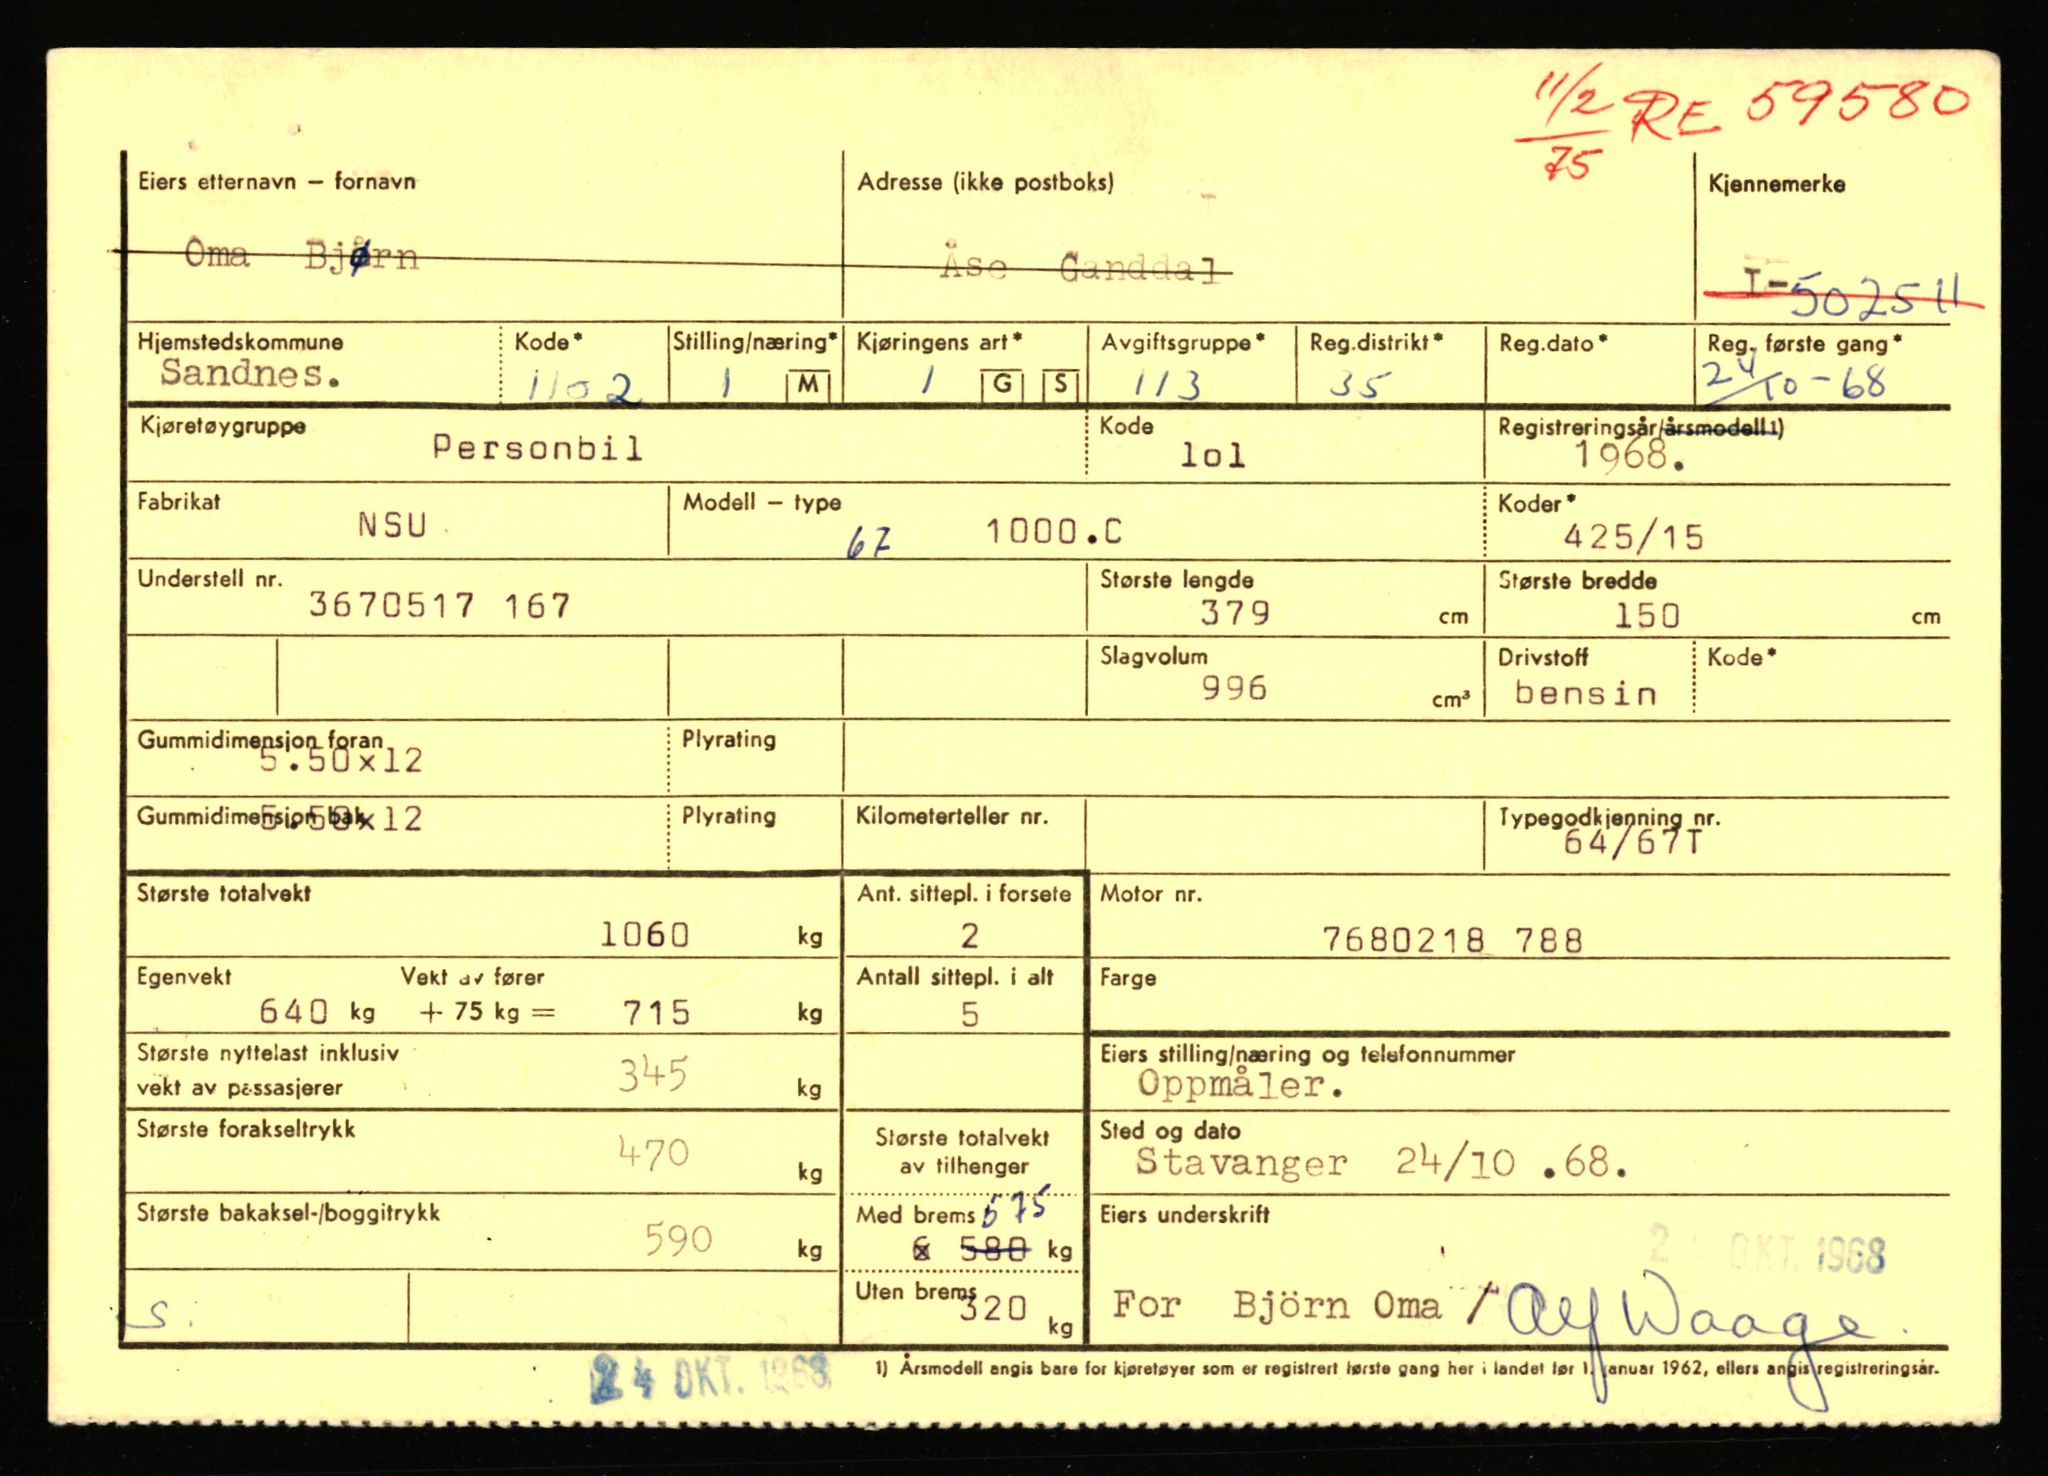 11/2 RE 59580
75
Eiers etternavn – fornavn Adresse (ikke postboks) Kjennemerke
Oma Bjørn Åse Ganddal L-50251
Hjemstedskommune Kode* Stilling/næring* Kjøringens art* Avgiftsgruppe* Reg.distrikt* Reg.dato* Reg. første gang*
Sandnes. 1102 1 M 1 G S 113 35 24/10-68
Kjøretøygruppe Kode Registreringsår/årsmodell 1)
Personbil lol 1968.
Fabrikat Modell – type Koder*
NSU 67 1000.C 425/15
Understell nr. Største lengde Største bredde
3670517 167 379 cm 150 cm
Slagvolum Drivstoff Kode*
996 cm³ bensin
Gummidimensjon foran Plyrating
5.50x12
Gummidimensjon bak Plyrating Kilometerteller nr. Typegodkjenning nr.
5.50x12 64/67T
Største totalvekt Ant. sittepl. i forsete Motor nr.
1060 kg 2 7680218 788
Egenvekt Vekt av fører Antall sittepl. i alt Farge
640 kg + 75 kg = 715 kg 5
Største nyttelast inklusiv Eiers stilling/næring og telefonnummer
vekt av passasjerer 345 kg Oppmåler.
Største forakseltrykk Største totalvekt Sted og dato
470 kg av tilhenger Stavanger 24/10 .68.
Største bakaksel-/boggitrykk Med brems 575 Eiers underskrift
590 kg 580 kg 24 OKT. 1968
Uten brems
S. 320 kg For Björn Oma / Alf Waage.
24 OKT. 1968 1) Årsmodell angis bare for kjøretøyer som er registrert første gang her i landet før 1. januar 1962, ellers angis registreringsår.